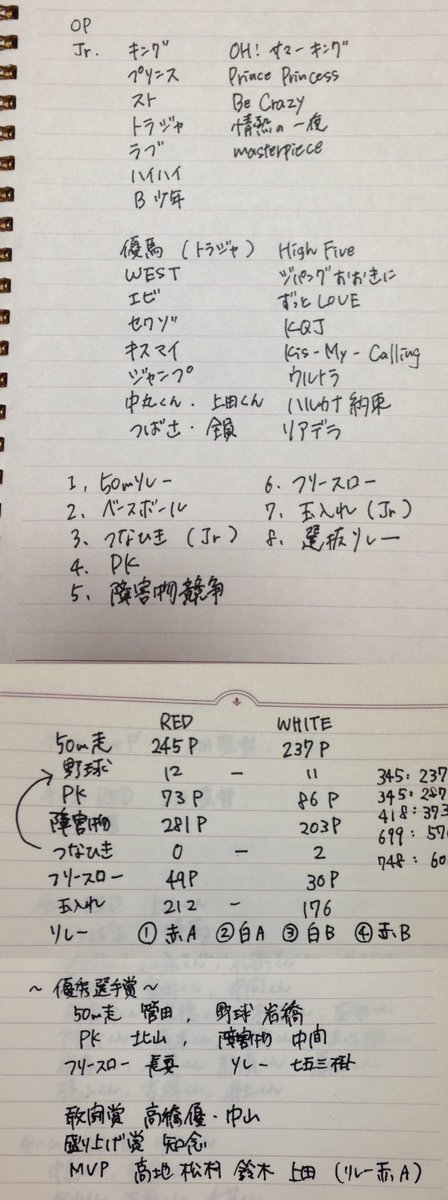 OP
Jr. キング OH! サマーキング
プリンス Prince Princess
スト Be Crazy
トラジャ 情熱の一夜
ラブ masterpiece
ハイハイ
B少年
優馬 (トラジャ) High Five
WEST ジパングおおきに
エビ ずっとLOVE
セクゾ KQJ
キスマイ Kis-My-Calling
ジャンプ ウルトラ
中丸くん・上田くん ハルカナ約束
つばさ・全員 リアデラ
1, 50mリレー 6. フリースロー
2. ベースボール 7. 玉入れ (Jr)
3. つなひき (Jr) 8. 選抜リレー
4. PK
5. 障害物競争
RED WHITE
50m走 245P 237P
野球 12 - 11 345:237
PK 73P 86P 345:287
障害物 281P 203P 418:373
つなひき 0 - 2 699:57
フリースロー 49P 30P 748:60
玉入れ 212 - 176
リレー ①赤A ②白A ③白B ④赤B
~ 優秀選手賞 ~
50m走 菅田, 野球 岩橋
PK 北山, 障害物 中間
フリースロー 長妻 リレー 七五三掛
敢闘賞 高橋優・中山
盛り上げ賞 知念
MVP 高地 松村 鈴木 上田 (リレー赤A)